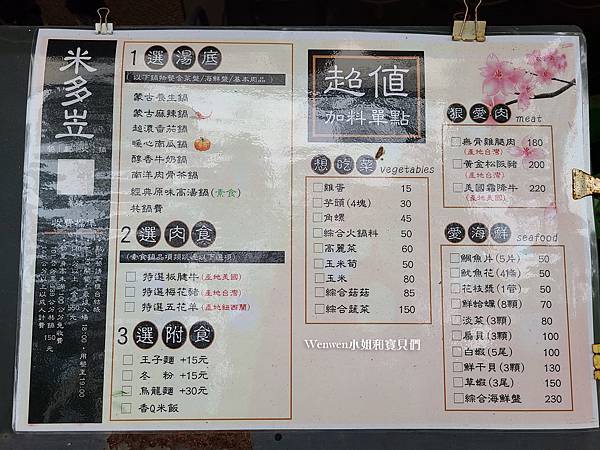 米多岦
1 選湯底
蒙古養生鍋
蒙古麻辣鍋
超濃番茄鍋
暖心南瓜鍋
醇香牛奶鍋
南洋肉骨茶鍋
經典原味高湯鍋(素食)
共鍋費
2 選肉食
特選板腱牛(產地美國)
特選梅花豬(產地台灣)
特選五花羊(產地紐西蘭)
3 選附食
王子麵 +15元
冬 粉 +15元
烏龍麵 +30元
香Q米飯
超值
加料單點
想吃菜 vegetables
雞蛋 15
芋頭(4塊) 30
角螺 45
綜合火鍋料 50
高麗菜 60
玉米筍 50
玉米 80
綜合菇菇 85
綜合蔬菜 150
狠愛肉 meat
無骨雞腿肉 180
(產地台灣)
黃金松阪豬 200
(產地台灣)
美國霜降牛 220
(產地美國)
愛海鮮 seafood
鯛魚片(5片) 50
魷魚花(4條) 50
花枝漿(1管) 50
鮮蛤蠣(8顆) 70
淡菜(3顆) 80
扇貝(3顆) 100
白蝦(5尾) 100
鮮干貝(3顆) 130
草蝦(3尾) 150
綜合海鮮盤 230
Wenwen小姐和寶貝們